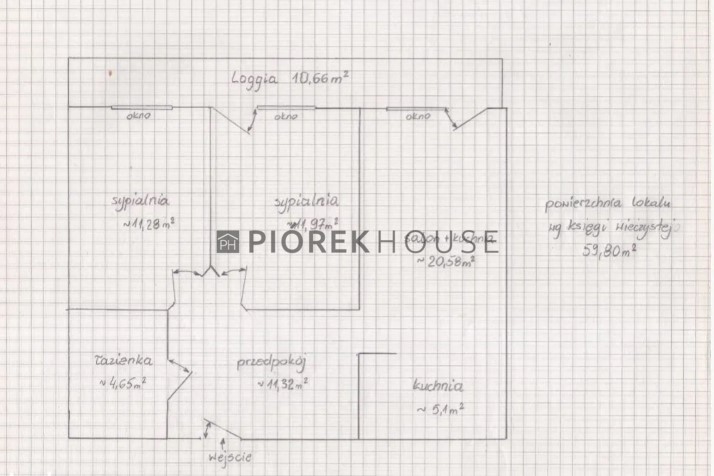 Loggia 10,66m²
okno
okno
okno
sypialnia
~11,28m²
sypialnia
~11,97m²
salon + kuchnia
~20,58m²
powierzchnia lokalu
wg księgi wieczystej
59,80m²
PH PIÓREK HOUSE
łazienka
~4,65m²
przedpokój
~11,32m²
kuchnia
~5,1m²
wejście